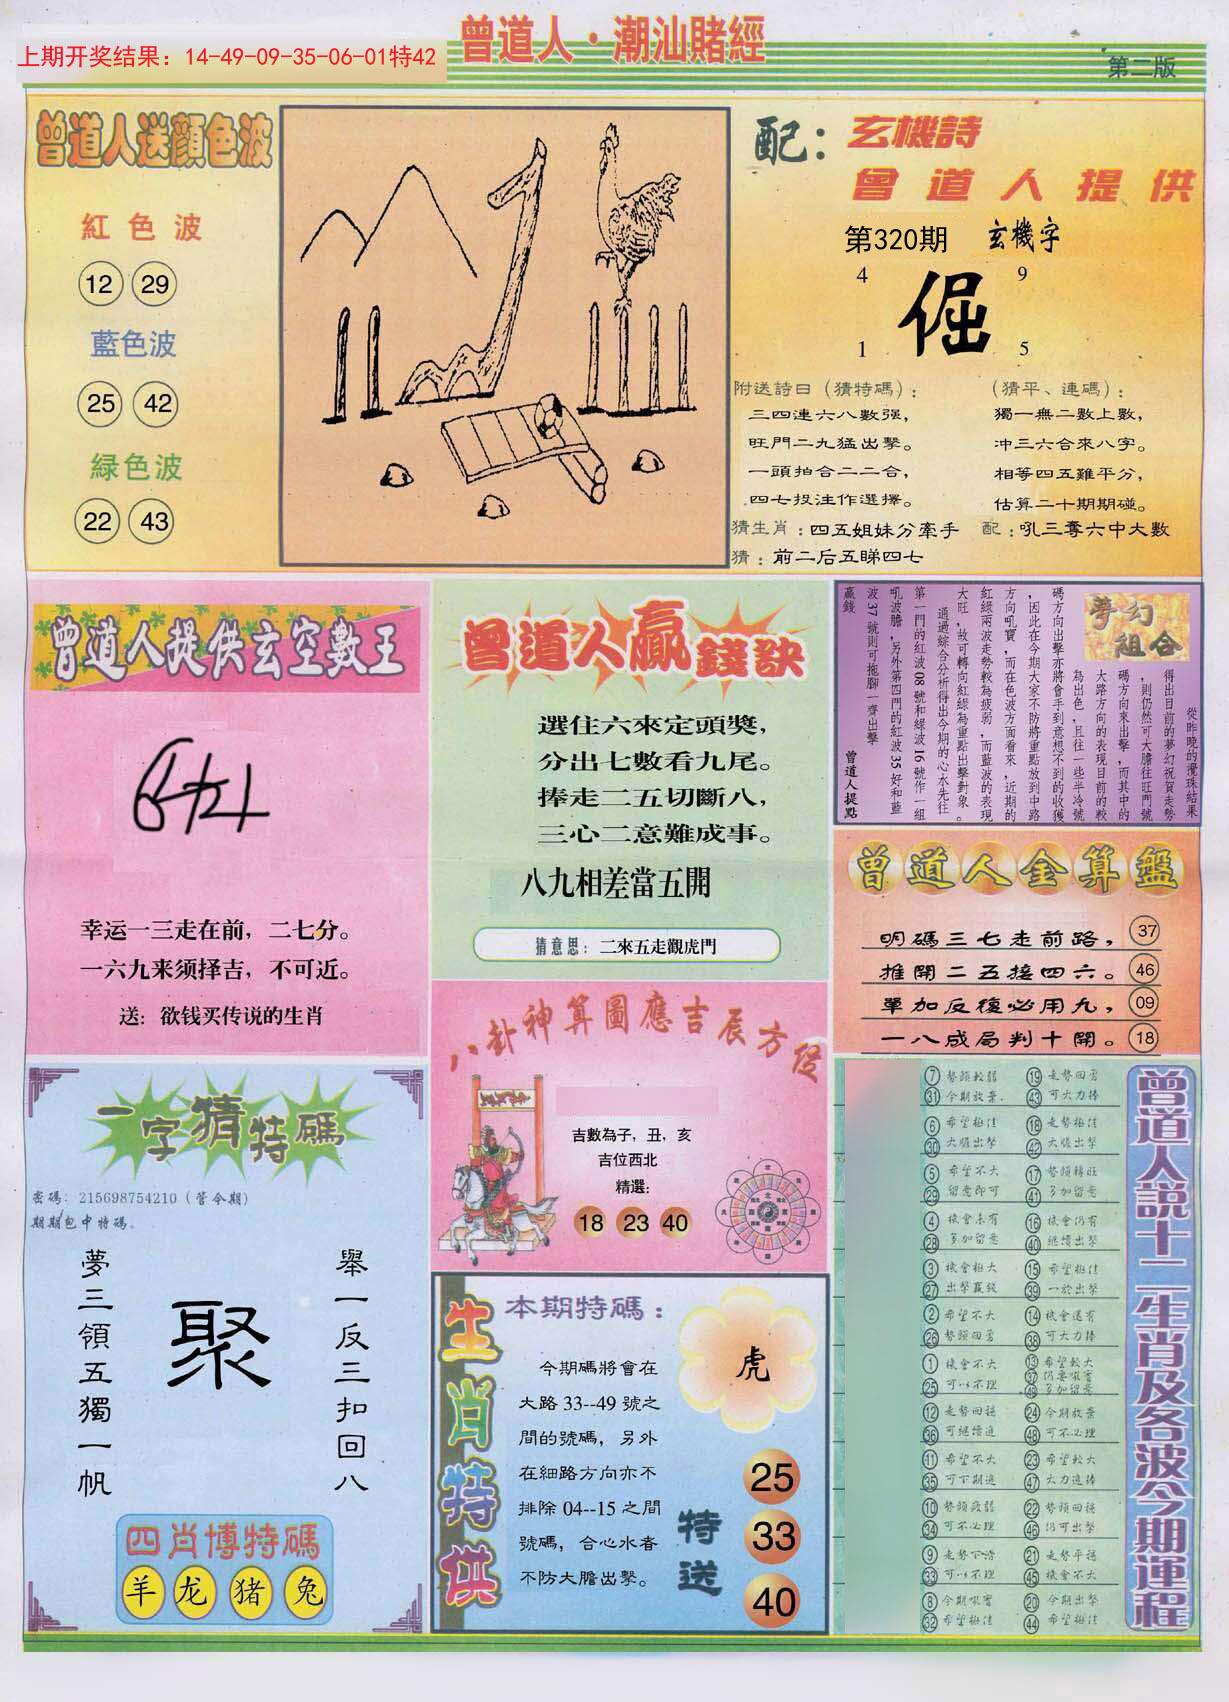 曾道人·潮汕賭經
上期开奖结果：14-49-09-35-06-01特42
第二版
曾道人送顏色波
紅色波
12 29
藍色波
25 42
緑色波
22 43
配：玄機詩
曾道人提供
第320期 玄機字
4 9
倔
1 5
附送詩曰（猜特碼）：
三四連六八數强，
旺門二九猛出擊。
一頭拍合二二合，
四七投注作選擇。
（猜平、連碼）：
獨一無二數上數，
冲三六合來八字。
相等四五難平分，
估算二十期期碰。
猜生肖：四五姐妹分牽手
配：吼三奪六中大數
猜：前二后五睇四七
曾道人提供玄空數王
幸运一三走在前，二七分。
一六九来须择吉，不可近。
送：欲钱买传说的生肖
曾道人贏錢訣
選住六來定頭獎，
分出七數看九尾。
捧走二五切斷八，
三心二意難成事。
八九相差當五開
猜意思：二來五走觀虎門
夢幻
組合
從昨晚的攪珠結果
得出目前的夢幻祝賀走勢
，則仍然可大膽往旺門號
碼方向來出擊，而其中的
大路方向的表現目前的較
為出色，且往一些半冷號
碼方向出擊亦將會手到意想不到的收獲
，因此在今期大家不防將重點放到中路
方向吼寶，而在色波方面看來，近期的
紅綠兩波走勢較為疲弱，而藍波的表現
大旺，故可轉向紅綠為重點出擊對象。
通過綜合分析得出今期的心水先往
第一門的紅波08號和綠波16號作一組
吼波膽，另外第四門的紅波35好和藍
波37號則可拖腳一齊出擊
贏錢
曾道人提點
曾道人金算盤
明碼三七走前路， 37
推開二五接四六。 46
單加反復必用九， 09
一八成局判十開。 18
一字猜特碼
密碼：215698754210（管令期）
期期包中特碼。
舉一反三扣回八
聚
夢三領五獨一帆
四肖博特碼
羊 龙 猪 兔
八卦神算圖應吉辰方位
吉數為子，丑，亥
吉位西北
精選：
18 23 40
生肖特供
本期特碼：
虎
今期碼將會在
大路33--49號之
間的號碼，另外
在細路方向亦不
排除04--15之間
號碼，合心水者
不防大膽出擊。
特送
25
33
40
曾道人説十二生肖及各波今期運程
7 勢頭較弱 19 走勢回勇
31 今期放棄 43 可大力捧
6 希望極佳 18 走勢極佳
30 大膽出擊 42 大膽出擊
5 希望不大 17 勢頭轉旺
29 留意即可 41 多加留意
4 機會未有 16 機會仍有
28 多加留意 40 繼續出擊
3 機會極大 15 希望極佳
27 出擊贏錢 39 一於出擊
2 希望不大 14 機會還有
26 勢頭回勇 38 可大力捧
1 機會不大 13 希望較大
25 可以不理 37 仍要吼實
49 多加留意
12 走勢回穩 24 今期放棄
36 可繼續追 48 可不必理
11 希望不大 23 希望較大
35 可下期追 47 大力追捧
10 勢頭疲弱 22 勢頭回穩
34 可不必理 46 仍可出擊
9 走勢下滑 21 走勢平穩
33 可以不理 45 機會不大
8 今期吼實 20 今期出擊
32 希望極佳 44 希望極佳